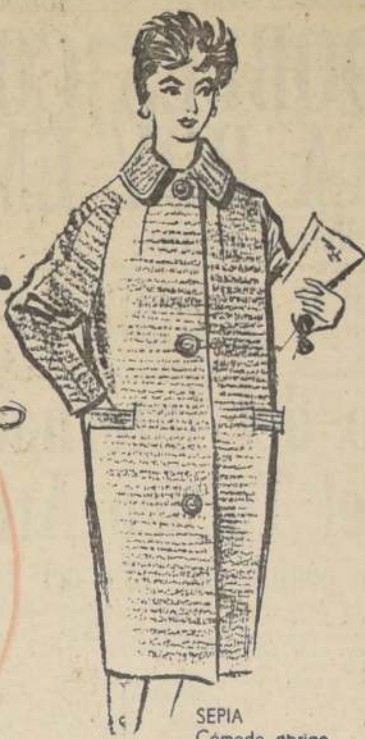 SEPIA
Cómodo abrigo